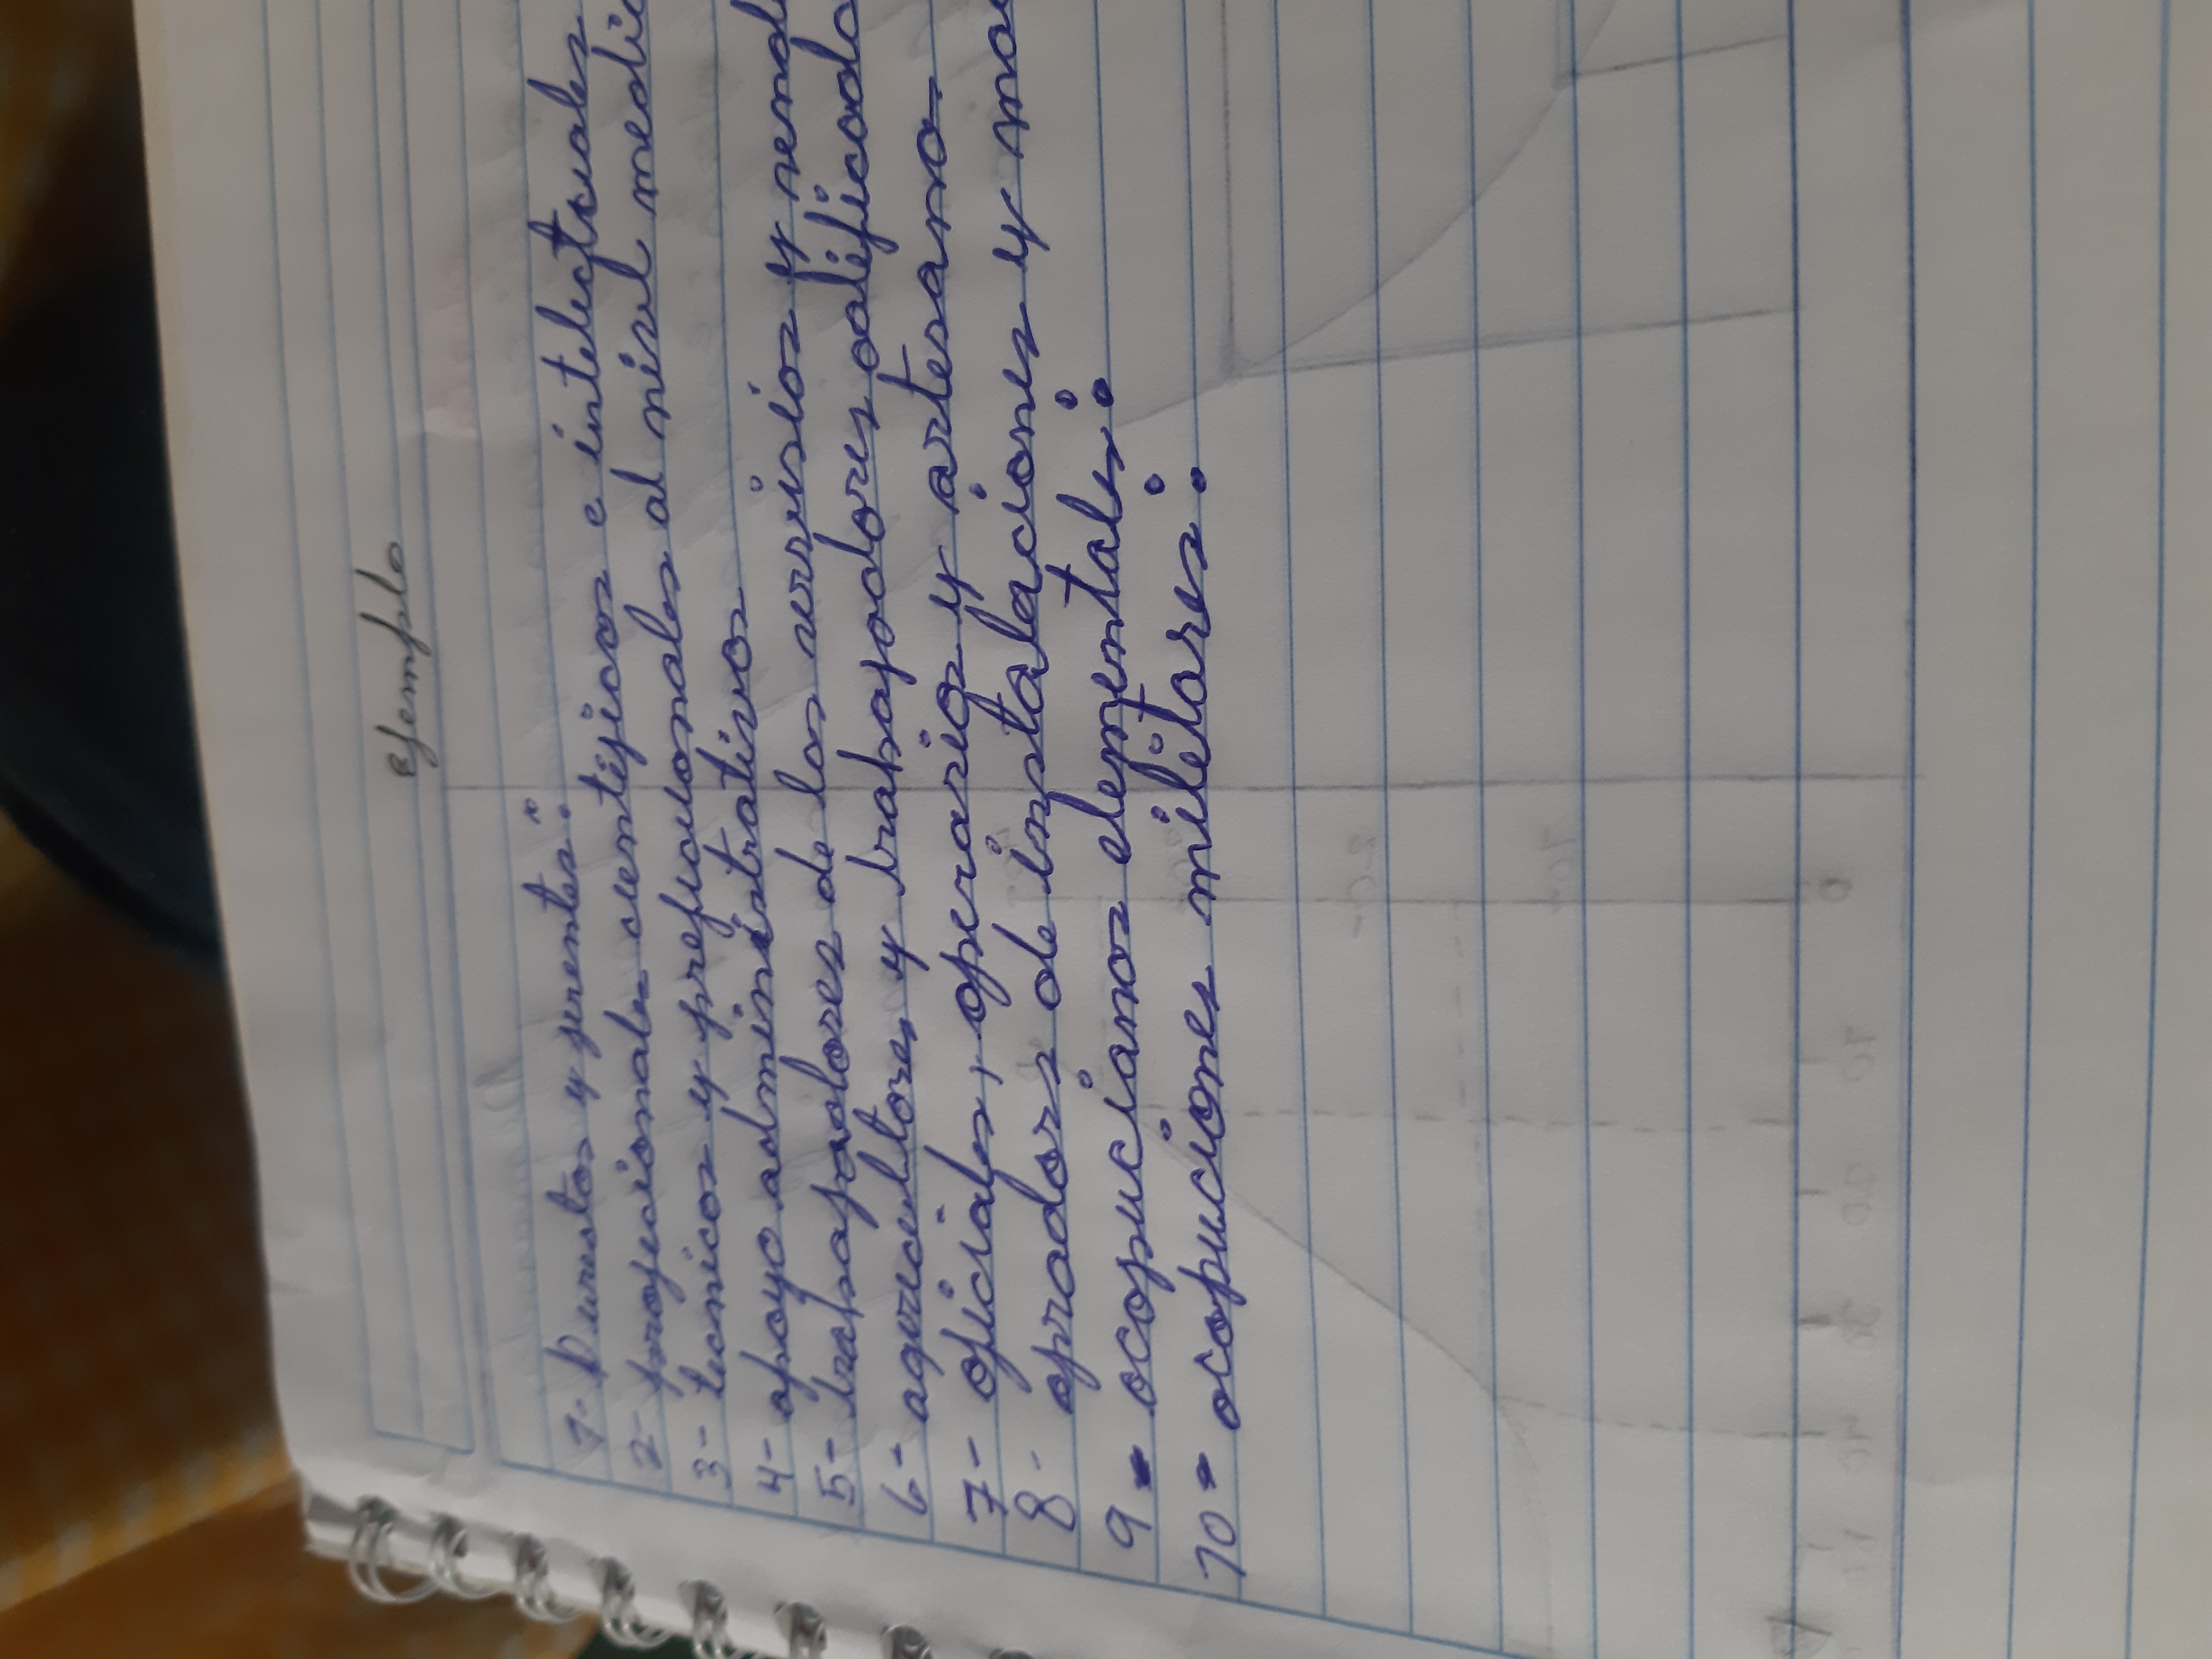 ejemplo
1- Puestos y jerentes:
2- profecionales cientificos e intelectuales
3- tecnicos y profecionales al nivel medio
4- apoyo administrativos
5- trabajadores de los servisios y
6- agricultores y trabajadores calificado
7- oficiales, operarios y artesano
8- opradors de instalaciones y
9- ocopucianos elementals:
10- ocopuciones militares: